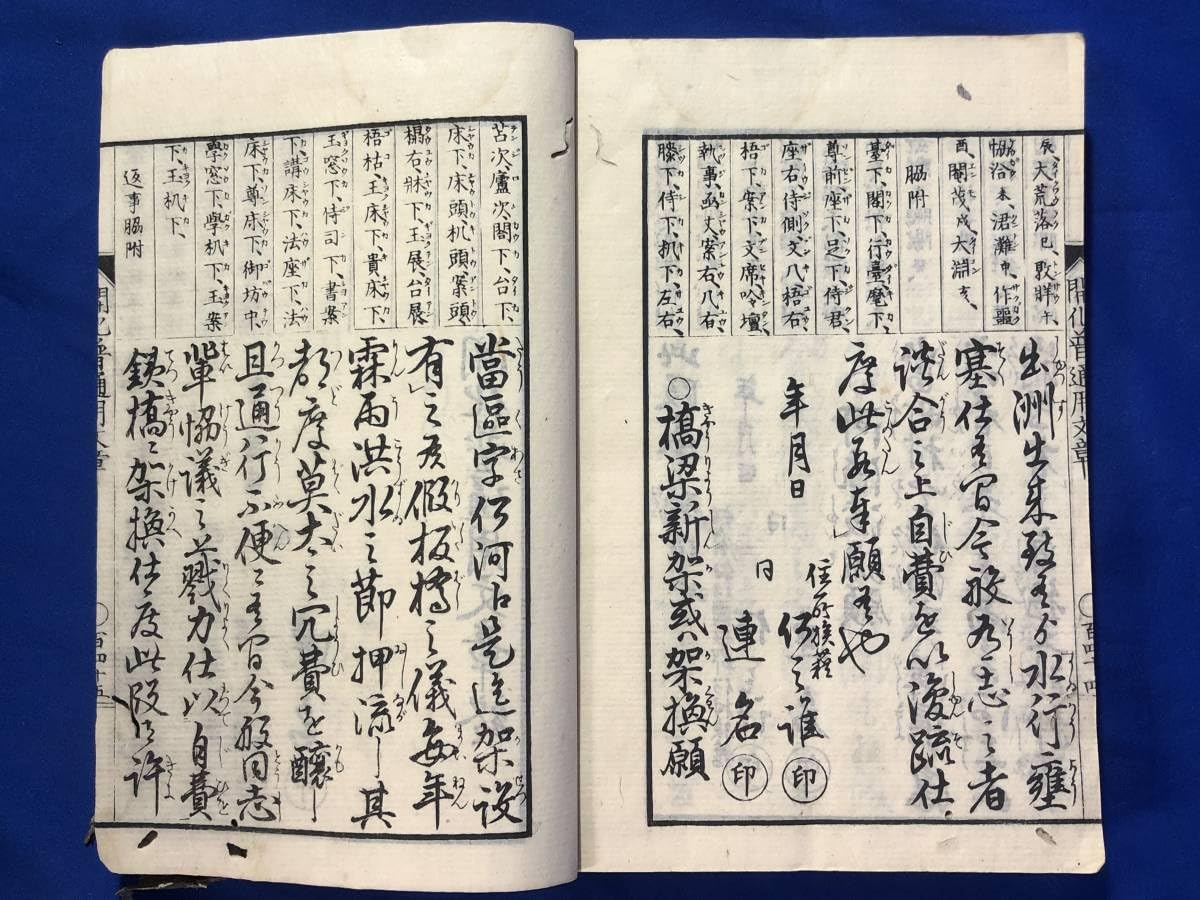 辰、大荒落巳、敦牂午、
協洽未、涒灘申、作噩
酉、閹茂戌、大淵亥、
脇附
臺下、閣下、行臺、麾下、
尊前、座下、足下、侍君
座右、侍側、文几、梧右
梧下、案下、文席、吟壇
執事、函丈、案右、几右
膝下、侍下、机下、左右
出洲出来致候ゟ水行壅
塞仕候間今般有志之者
談合之上自費を以浚疏仕
度此段奉願候也
年月日
住所族籍
何之誰 印
同
連名 印
○橋梁新架或ハ架換願
開化普通用文章
○百四十四
苫次、廬次、閤下、台下、
床下、床頭、机頭、案頭
榻右、牀下、玉展、台展
梧枯、玉床下、貴床下、
玉窓下、侍司下、書案
下、講床下、法座下、法
床下、尊床下、御坊中、
學窓下、學机下、玉案
下、玉机下、
返事脇附
當區字何河ニ是迄架設
有之候假板橋之儀毎年
霖雨洪水之節押流し其
都度莫大之冗費を醸し
且通行不便ニ候間今般同志
輩協議之上戮力仕以自費
鉄橋ニ架換仕度此段御許
開化普通用文章
○百四十五